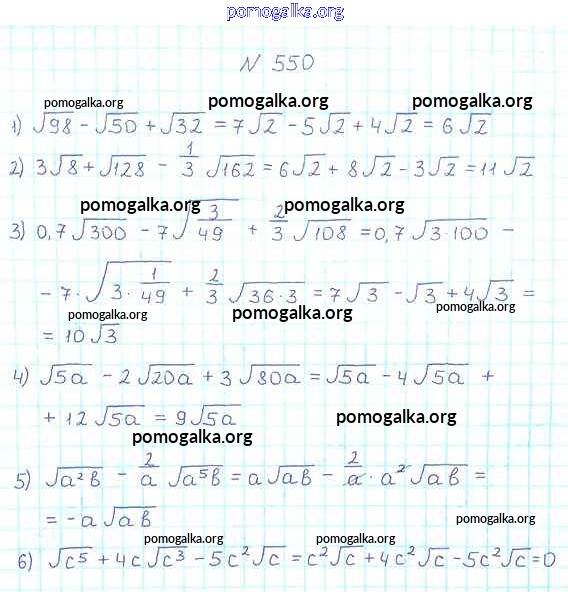 pomogalka.org
N 550
pomogalka.org pomogalka.org pomogalka.org
1) √98 - √50 + √32 = 7√2 - 5√2 + 4√2 = 6√2
2) 3√8 + √128 - 1/3 √162 = 6√2 + 8√2 - 3√2 = 11√2
pomogalka.org pomogalka.org
3) 0,7√300 - 7√(3/49) + 2/3 √108 = 0,7√(3·100) -
- 7·√(3·1/49) + 2/3 √(36·3) = 7√3 - √3 + 4√3 =
pomogalka.org pomogalka.org pomogalka.org
= 10√3
4) √5a - 2√20a + 3√80a = √5a - 4√5a +
+ 12√5a = 9√5a
pomogalka.org
pomogalka.org
5) √a²b - 2/a √a⁵b = a√ab - 2/a · a²√ab =
= -a√ab
pomogalka.org
pomogalka.org pomogalka.org
6) √c⁵ + 4c√c³ - 5c²√c = c²√c + 4c²√c - 5c²√c = 0